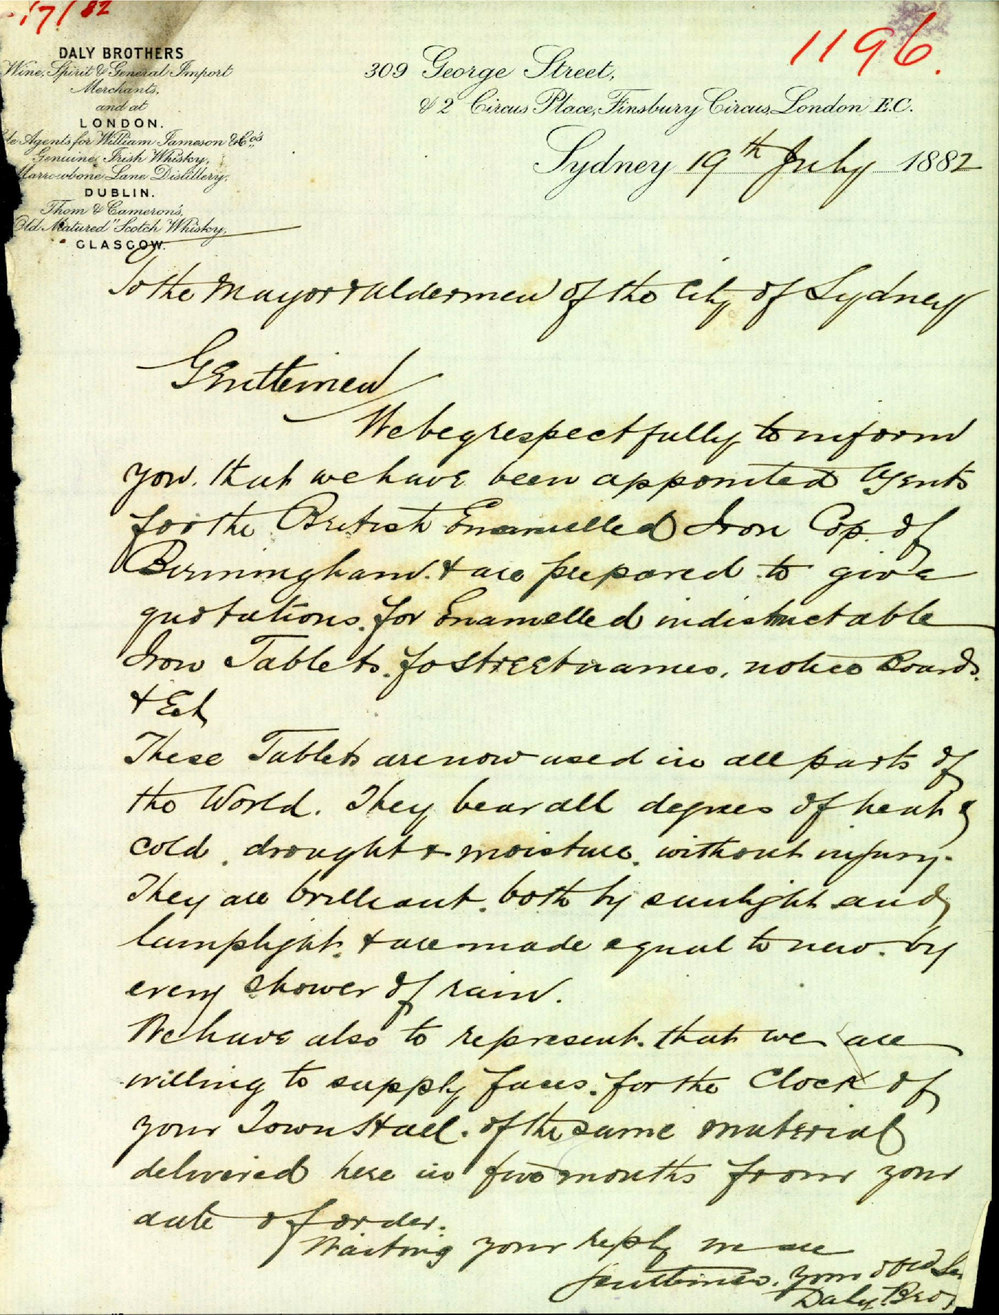 17/82
1196.
DALY BROTHERS
Wine, Spirit & General Import
Merchants,
and at
LONDON.
Agents for William Jameson & Co's
Genuine Irish Whisky,
Marrowbone Lane Distillery,
DUBLIN.
Thom & Cameron's,
Old Matured" Scotch Whisky,
GLASGOW.
309 George Street,
& 2 Circus Place, Finsbury Circus, London E.C.
Sydney 19th July 1882
To the Mayor & Aldermen of the City of Sydney
Gentlemen
We beg respectfully to inform
you. that we have been appointed Agents
for the British Enamelled Iron Coy. of
Birmingham. & are prepared to give
quotations. for Enamelled indistructable
Iron Tablets. fo street names, notice Boards.
& Ect
These Tablets are now used in all parts of
the World. They bear all degrees of heat &
cold, drought & moisture, without injury.
They are brilliant. both by sunlight and
lamplight. & are made equal to new. by
every shower of rain.
We have also to represent. that we are
willing to supply faces. for the Clock of
your Town Hall. of the same material
delivered here in five months from your
date of order.
Waiting your reply we are
Gentlemen. Your obed Se
Daly Bros